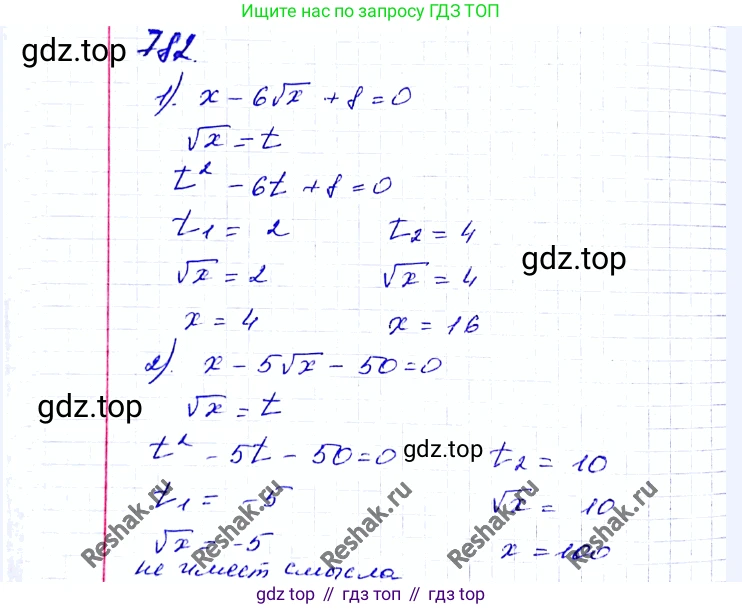 Ищите нас по запросу ГДЗ ТОП
gdz.top
782.
1). x - 6√x + 8 = 0
√x = t
t² - 6t + 8 = 0
t₁ = 2 t₂ = 4
gdz.top
√x = 2 √x = 4
x = 4 x = 16
2). x - 5√x - 50 = 0
gdz.top
√x = t
t² - 5t - 50 = 0 gdz.top t₂ = 10
t₁ = -5 √x = 10
√x = -5 x = 100
не имеет смысла
Reshak.ru
Reshak.ru
Reshak.ru
Reshak.ru
gdz.top // гдз топ // гдз.top